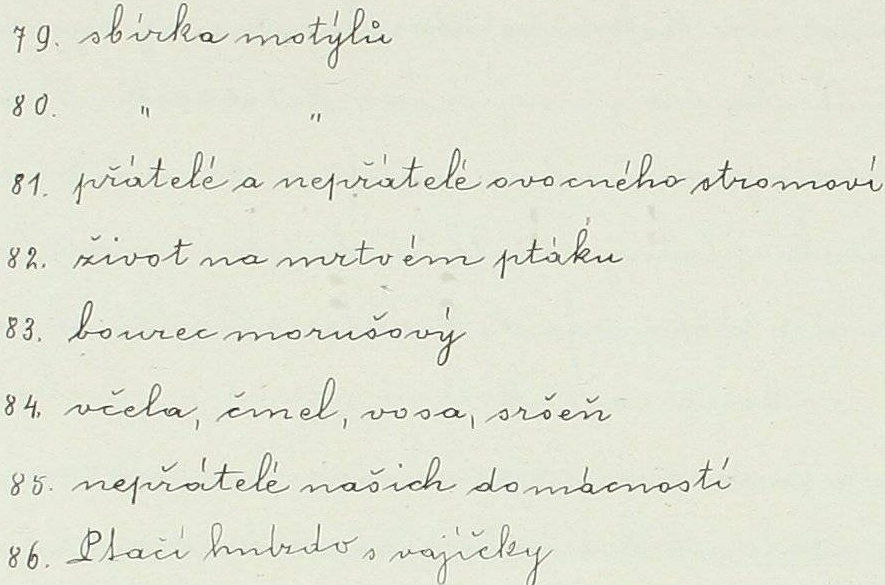 79. sbírka motýlů
80. " "
81. přátelé a nepřátelé ovocného stromoví
82. život na mrtvém ptáku
83. bourec morušový
84. včela, čmel, vosa, sršeň
85. nepřátelé našich domácností
86. Ptačí hnízdo s vajíčky